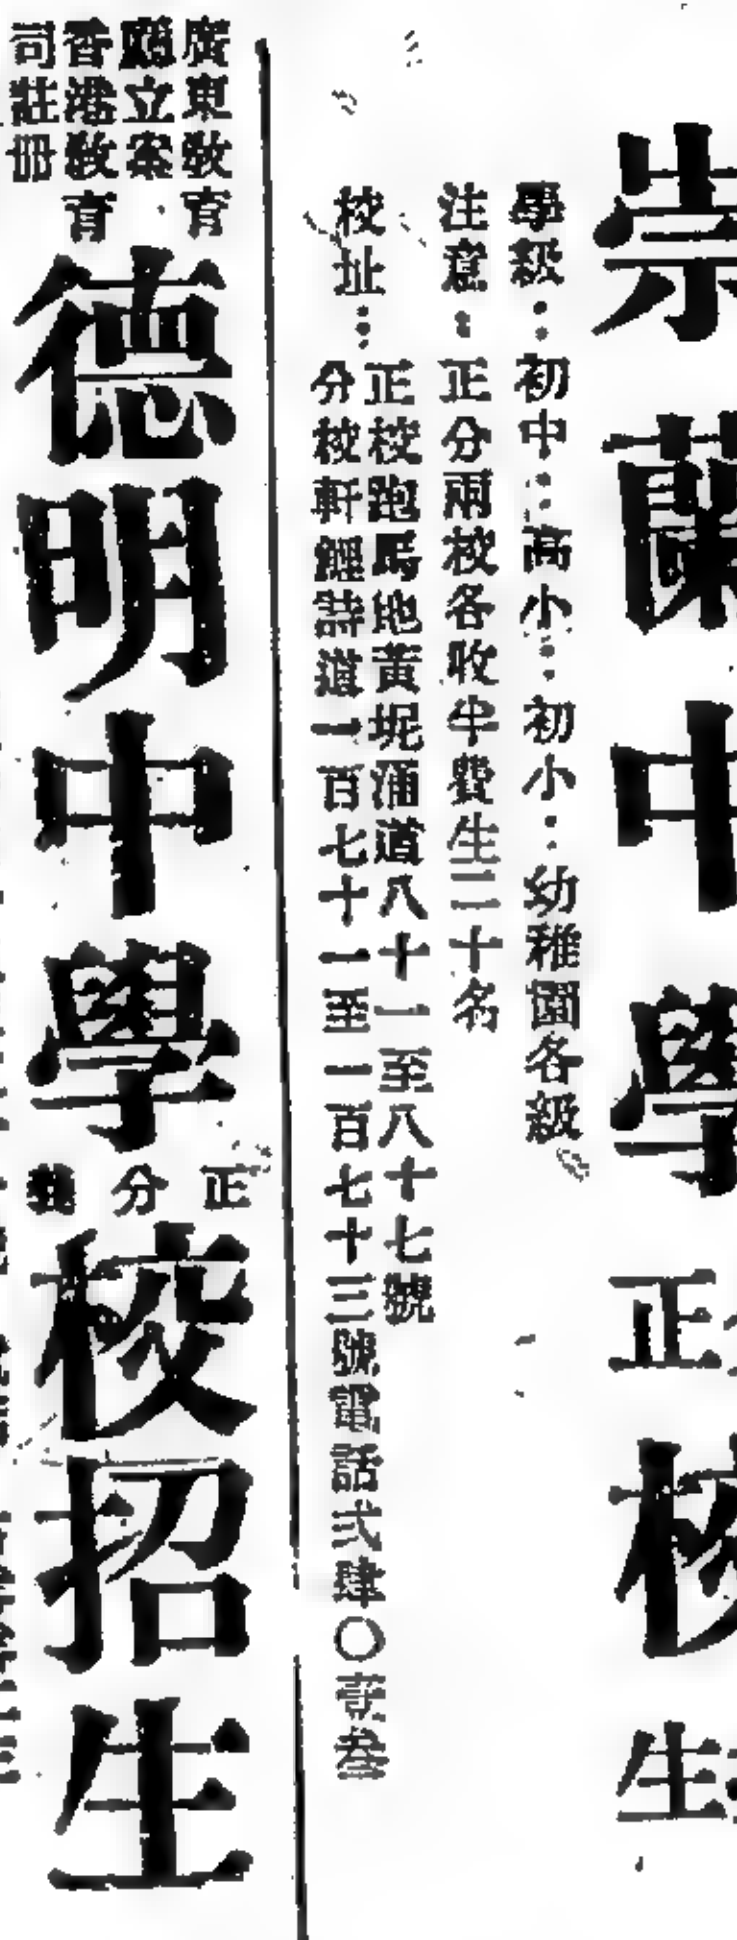 崇蘭中學
正
校
生
學級：初中：高小：初小：幼稚園各級
注意：正分兩校各收半費生二十名
校址：
正校跑馬地黃坭涌道八十一至八十七號
分校軒鯉詩道一百七十一至一百七十三號電話弍肆〇壹叁
廣東敎育
廳立案
香港敎育
司註冊
德明中學
正分
校招生